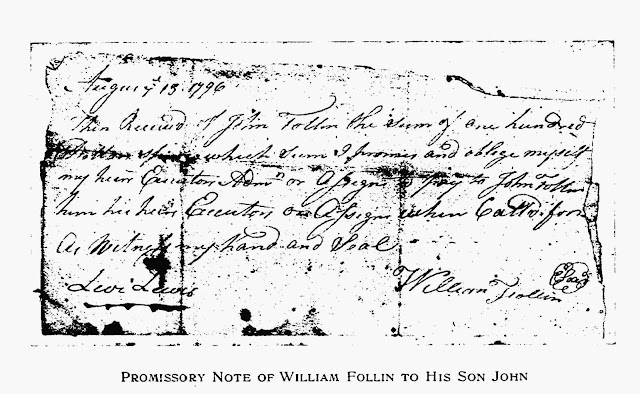 August 13. 1796
Then Received of John Follin the sum of one hundred
which sum I promes and oblige myself
my heirs Executors Admr or Assigns to pay to John Follin
him his heirs Executors or Assigns when Calld for
As Witness my hand and Seal
Levi Lewis William Follin Seal
PROMISSORY NOTE OF WILLIAM FOLLIN TO HIS SON JOHN